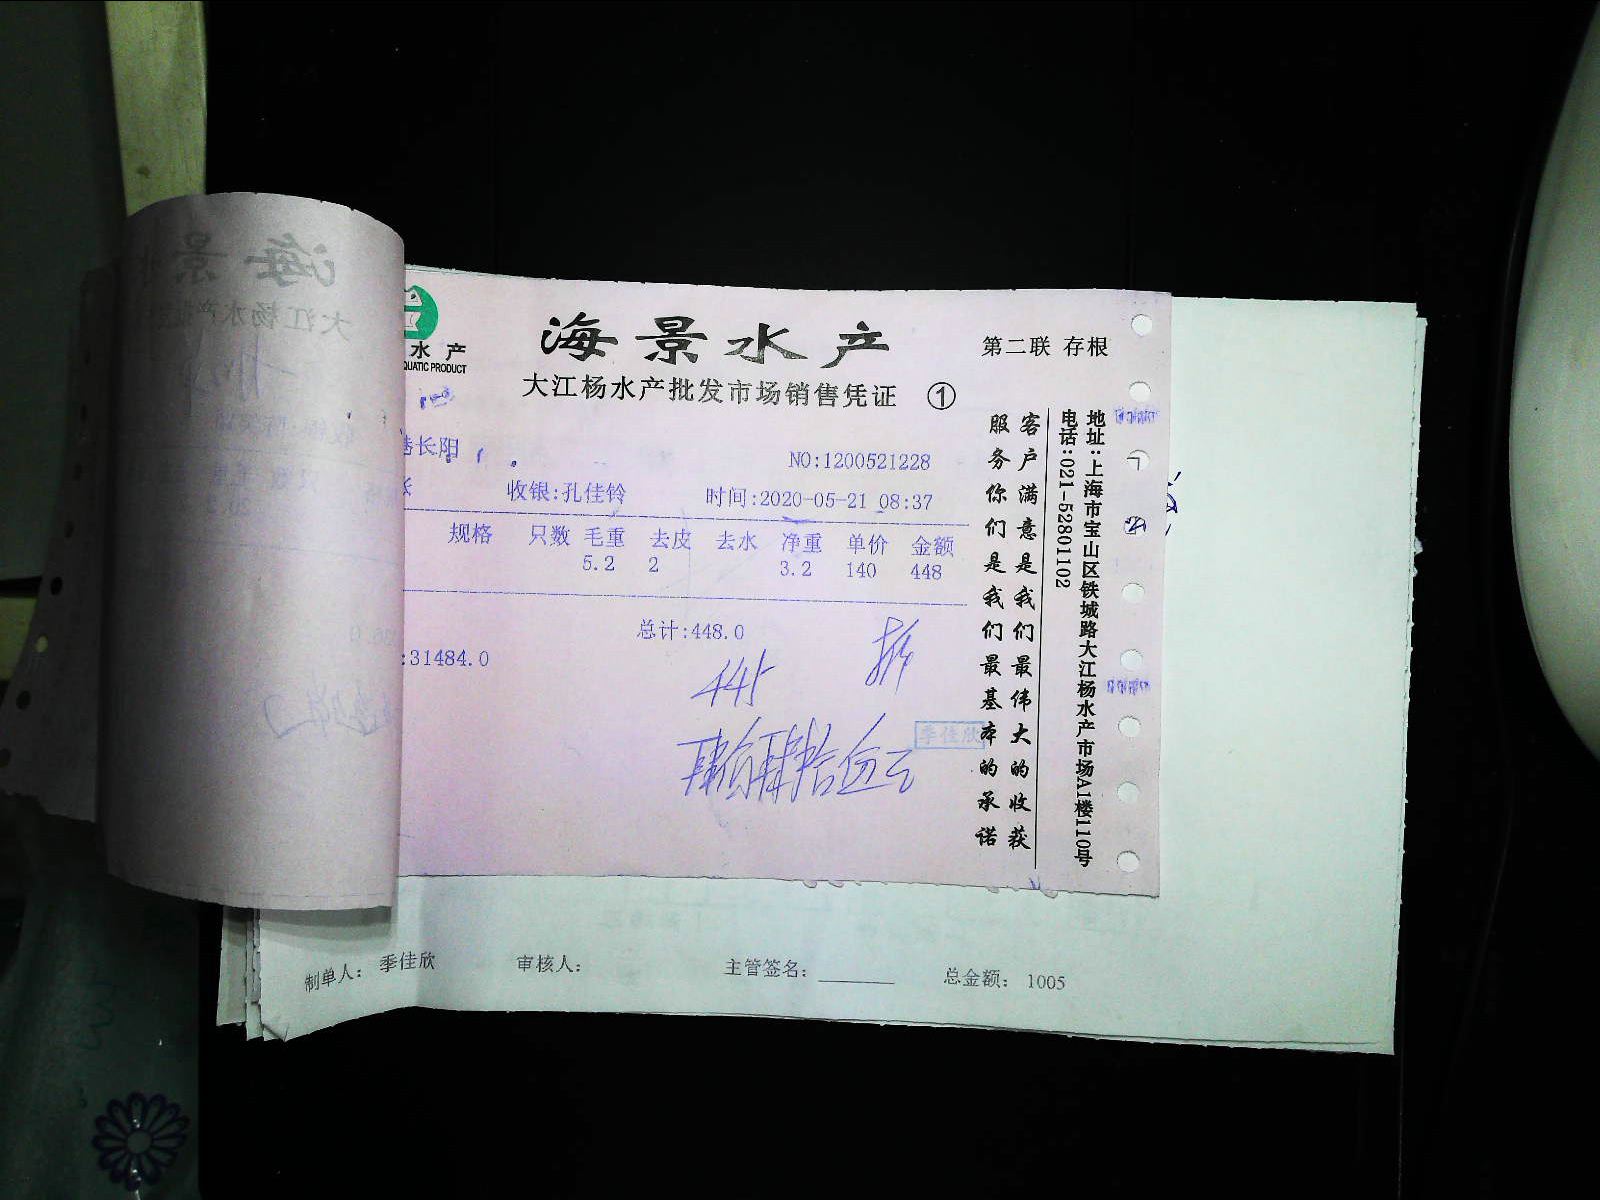 水 产
QUATIC PRODUCT
海景水产
第二联 存根
大江杨水产批发市场销售凭证 ①
港长阳
NO:1200521228
收银:孔佳铃 时间:2020-05-21 08:37
规格 只数 毛重 去皮 去水 净重 单价 金额
5.2 2 3.2 140 448
总计:448.0
:31484.0
445
肆佰肆拾伍元
季佳欣
客户满意是我们最伟大的收获
服务你们是我们最基本的承诺
地址:上海市宝山区铁城路大江杨水产市场A1楼110号
电话:021-52801102
制单人: 季佳欣 审核人: 主管签名: 总金额: 1005